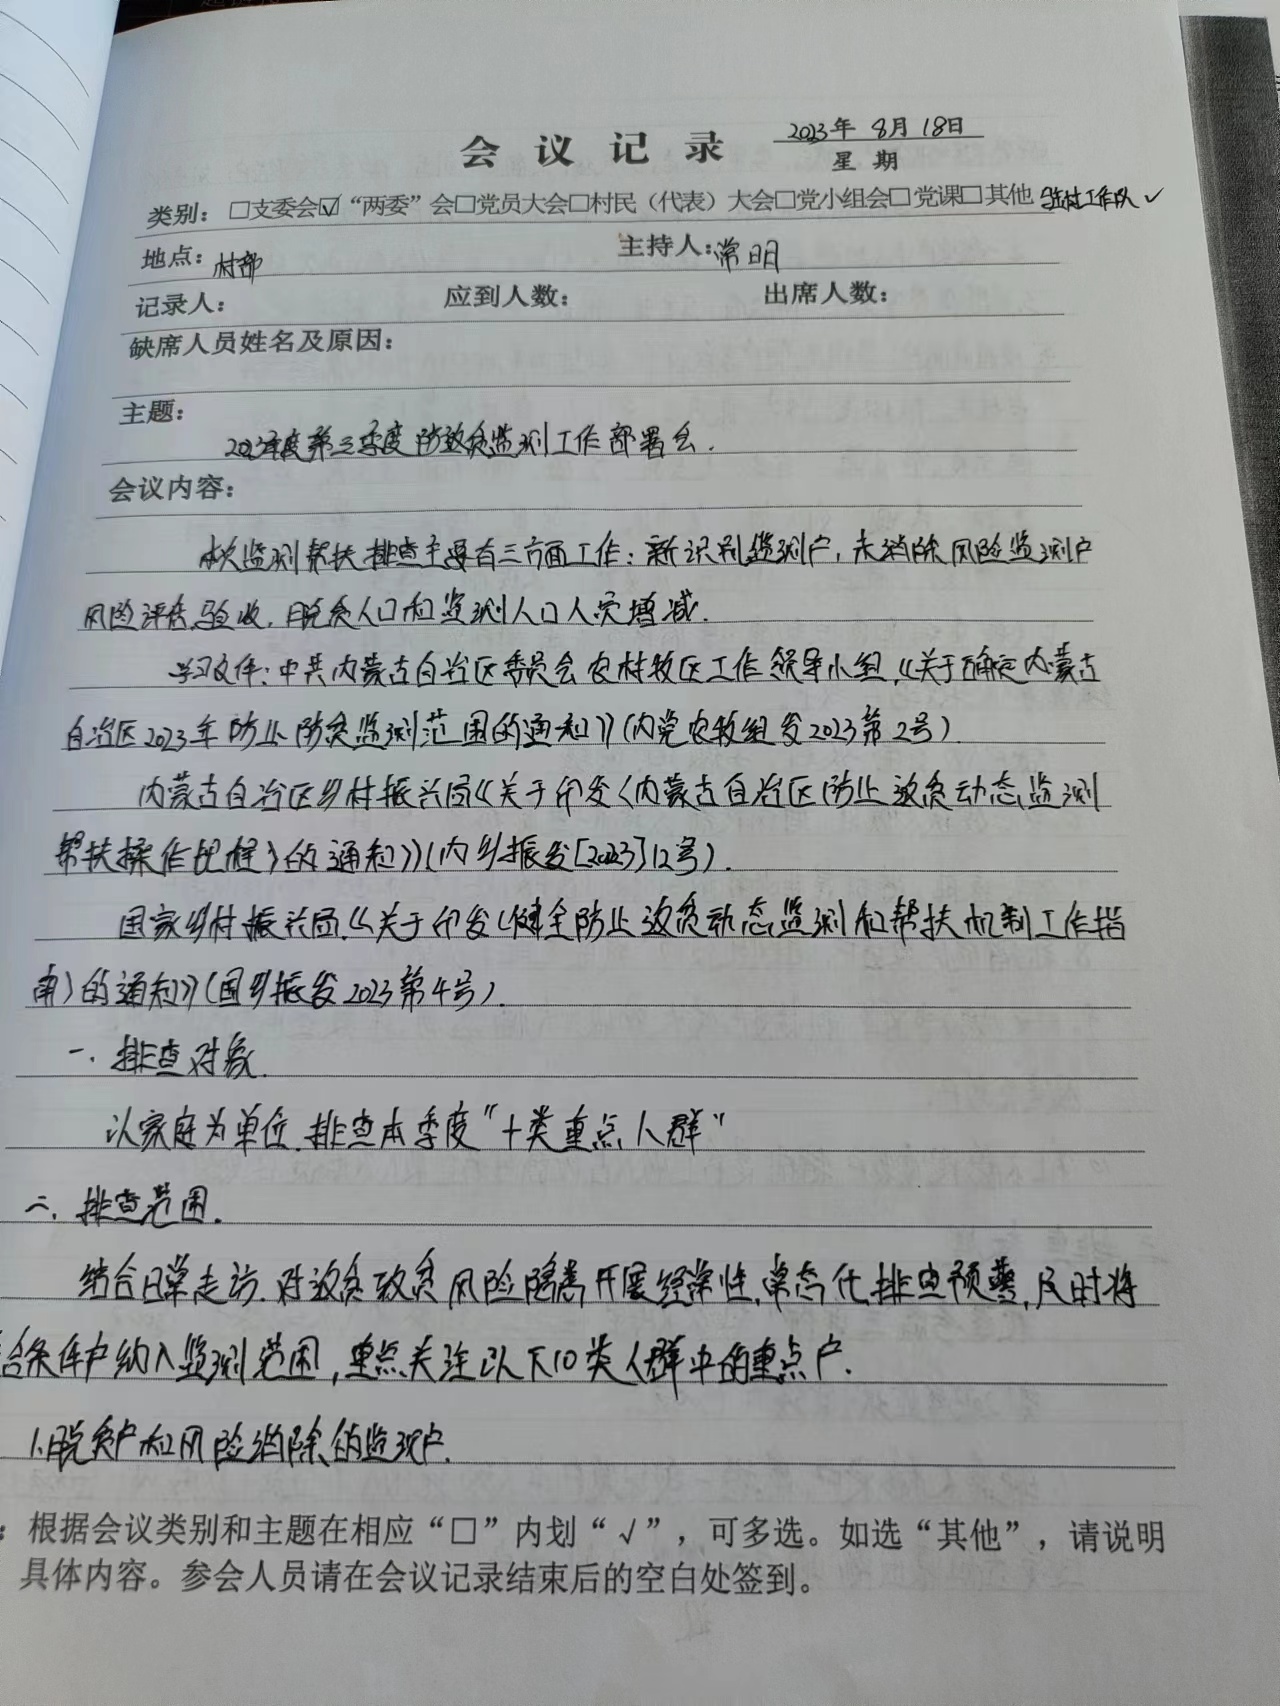 会议记录
2023年 8月 18日
星期
类别：□支委会☑“两委”会□党员大会□村民（代表）大会□党小组会□党课□其他 驻村工作队✓
地点：村部 主持人：常明
记录人： 应到人数： 出席人数：
缺席人员姓名及原因：
主题：
2023年度第三季度防致贫监测工作部署会.
会议内容：
本次监测帮扶排查主要有三方面工作：新识别监测户，未消除风险监测户
风险评估验收，脱贫人口和监测人口人员增减.
学习文件：中共内蒙古自治区委员会农村牧区工作领导小组，《关于确定内蒙古
自治区2023年防止防贫监测范围的通知》（内党农牧组发2023第2号）.
内蒙古自治区乡村振兴局《关于印发〈内蒙古自治区防止致贫动态监测
帮扶操作规程〉的通知》（内乡振发[2023]12号）.
国家乡村振兴局.《关于印发〈健全防止致贫动态监测和帮扶机制工作指
南〉的通知》（国乡振发2023第4号）.
一.排查对象.
以家庭为单位.排查本季度“十类重点人群”
二.排查范围.
结合日常走访.对致贫致贫风险隐患开展经常性,常态化,排查预警,及时将
合条件户纳入监测范围，重点关注以下10类人群中的重点户.
1.脱贫户和风险消除的监测户.
：根据会议类别和主题在相应“□”内划“√”，可多选。如选“其他”，请说明
具体内容。参会人员请在会议记录结束后的空白处签到。